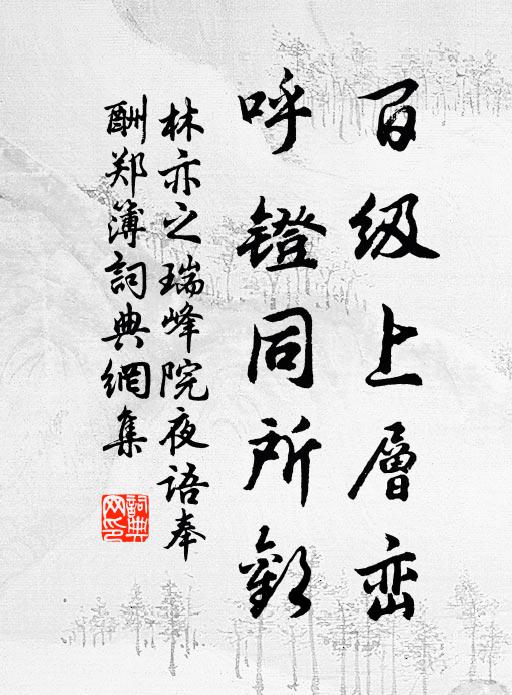 百级上層峦
呼镫同所歡
林亦之瑞峰院夜语奉
酬郑簿詞典網集
詞典網印